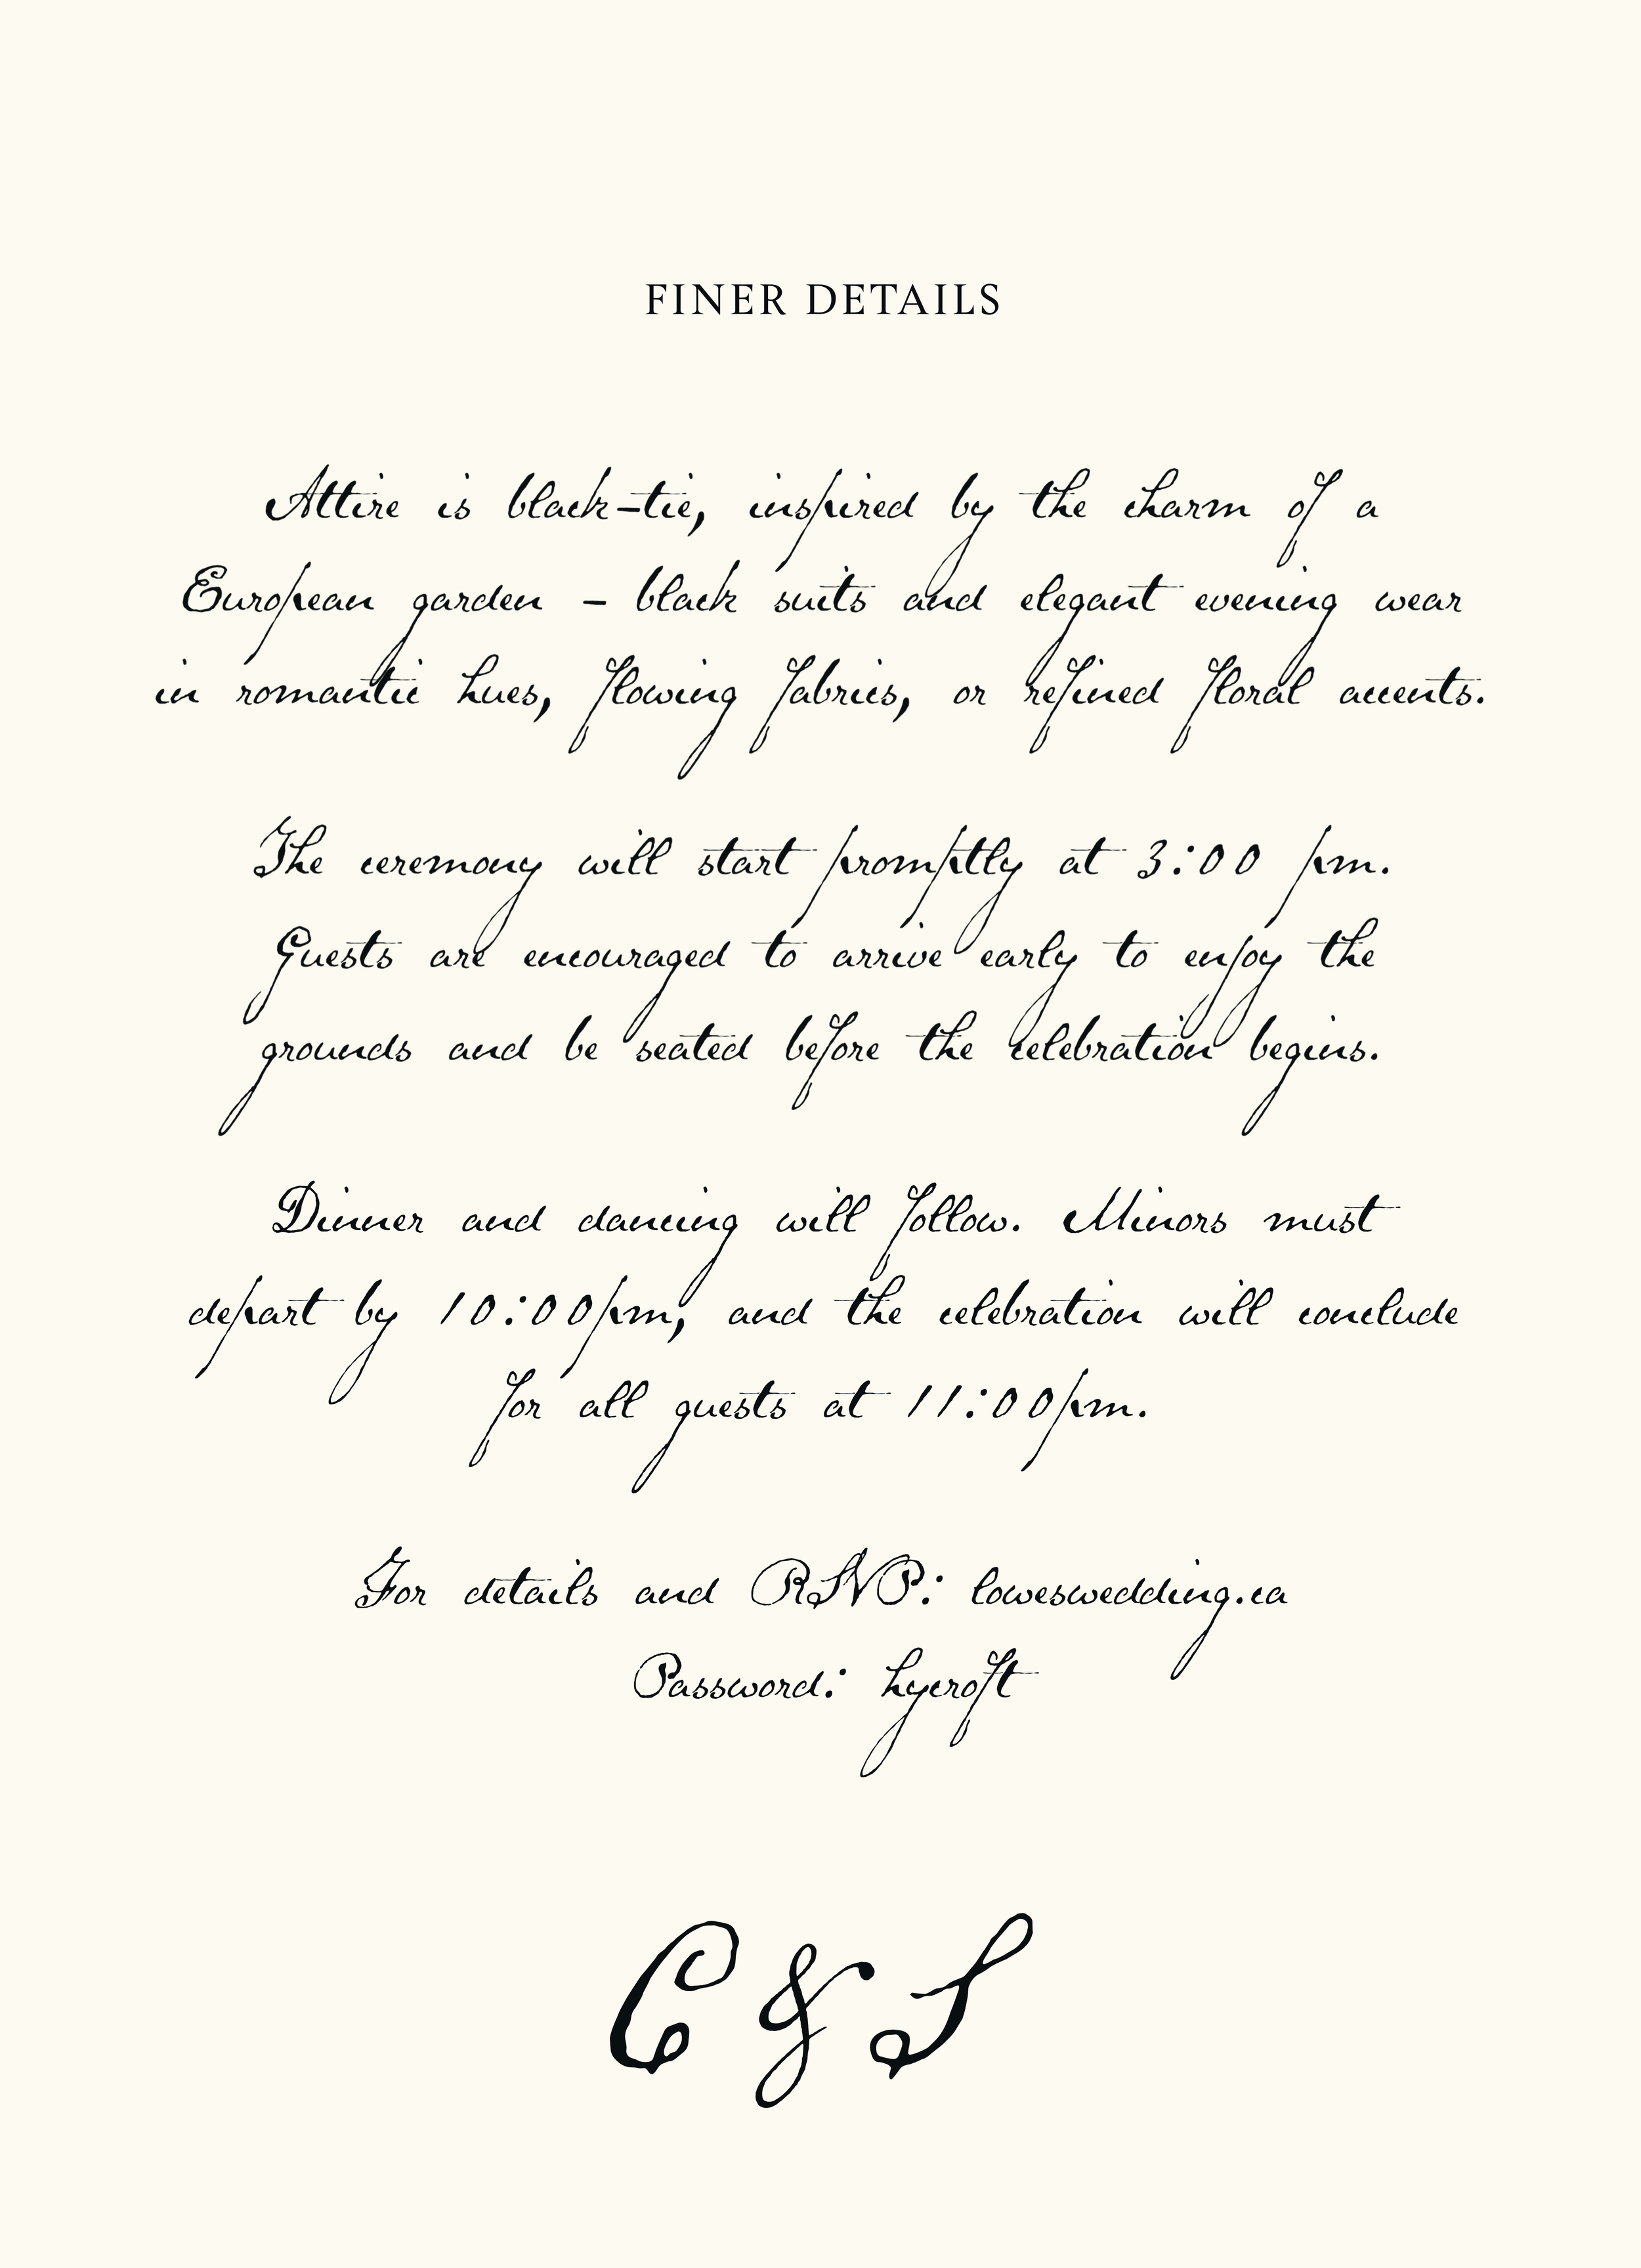 FINER DETAILS
Attire is black-tie, inspired by the charm of a
European garden - black suits and elegant evening wear
in romantic hues, flowing fabrics, or refined floral accents.
The ceremony will start promptly at 3:00 pm.
Guests are encouraged to arrive early to enjoy the
grounds and be seated before the celebration begins.
Dinner and dancing will follow. Minors must
depart by 10:00pm, and the celebration will conclude
for all guests at 11:00pm.
For details and RSVP: loweswedding.ca
Password: hycroft
C & S